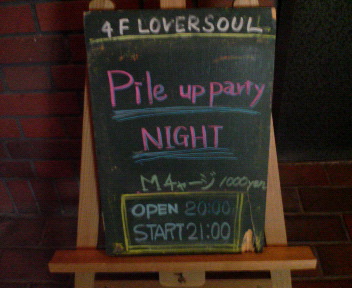 4F LOVERSOUL
Pile up party
NIGHT
Mチャージ 1000yen
OPEN 20:00
START 21:00